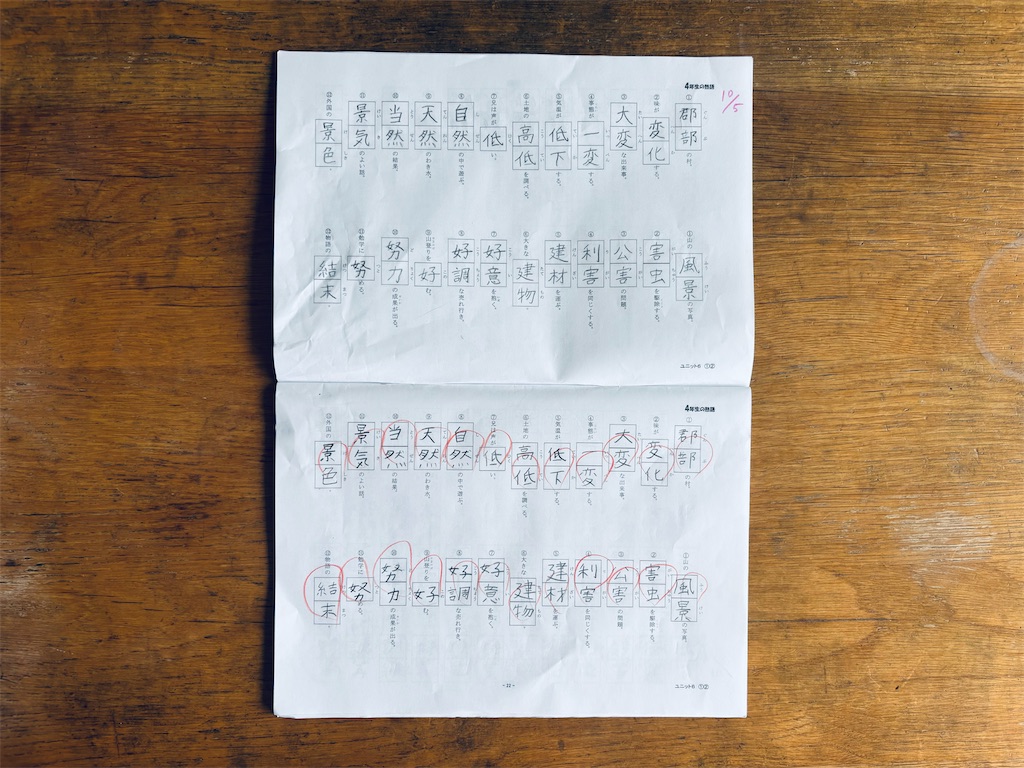 10/5
4年生の熟語
①郡部の村。
②が変化する。
③大変な出来事。
④事態が一変する。
⑤気温が低下する。
⑥土地の高低を調べる。
⑦兄は声が低い。
⑧自然の中で遊ぶ。
⑨天然のわき水。
⑩当然の結果。
⑪景気のよい話。
⑫外国の景色。
①山の風景の写真。
②害虫を駆除する。
③公害の問題。
④利害を同じくする。
⑤建材を運ぶ。
⑥大きな建物。
⑦好意を抱く。
⑧好調な売れ行き。
⑨山登りを好む。
⑩努力の成果が出る。
⑪学に努める。
⑫物語の結末。
ユニット6 ①②
4年生の熟語
①郡部の村。
②が変化する。
③大変な出来事。
④事態が一変する。
⑤気温が低下する。
⑥土地の高低を調べる。
⑦兄は声が低い。
⑧自然の中で遊ぶ。
⑨天然のわき水。
⑩当然の結果。
⑪景気のよい話。
⑫外国の景色。
①山の風景の写真。
②害虫を駆除する。
③公害の問題。
④利害を同じくする。
⑤建材を運ぶ。
⑥大きな建物。
⑦好意を抱く。
⑧好調な売れ行き。
⑨山登りを好む。
⑩努力の成果が出る。
⑪学に努める。
⑫物語の結末。
-22-
ユニット6 ①②